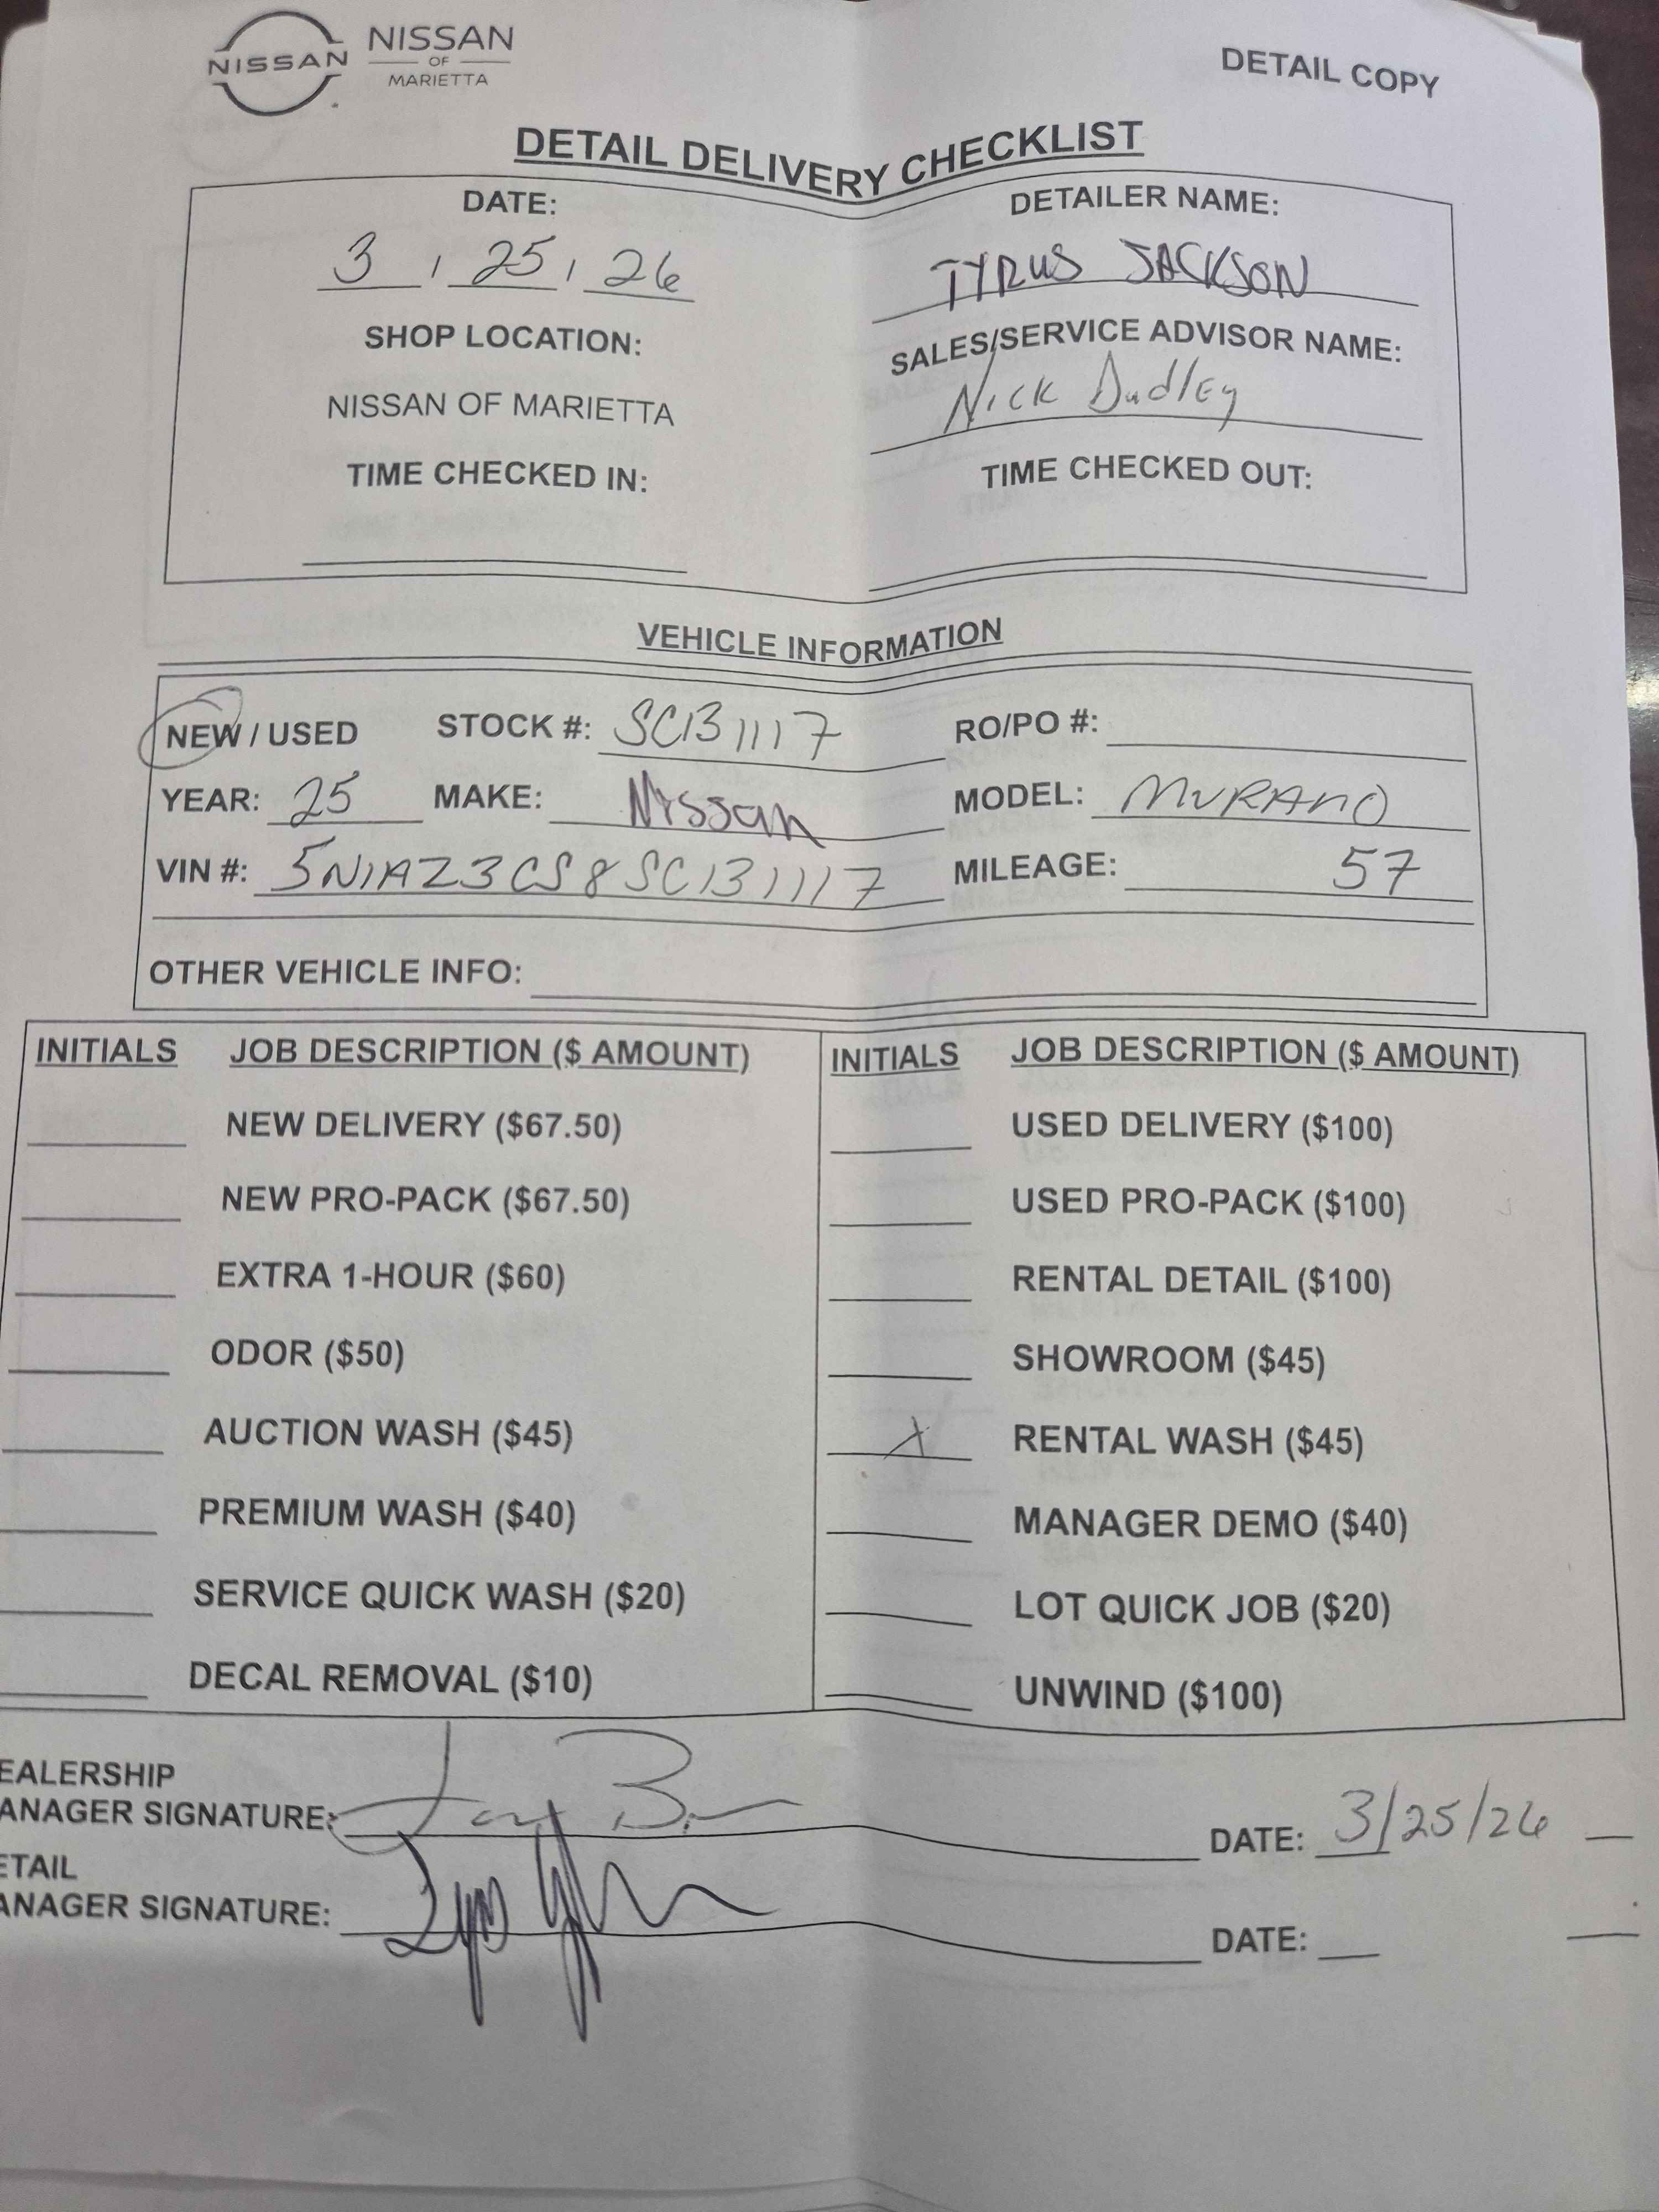 NISSAN
NISSAN
OF
MARIETTA
DETAIL COPY
DETAIL DELIVERY CHECKLIST
DATE:
3 / 25 / 26
SHOP LOCATION:
NISSAN OF MARIETTA
TIME CHECKED IN:
DETAILER NAME:
TYRUS JACKSON
SALES/SERVICE ADVISOR NAME:
NICK DudlEy
TIME CHECKED OUT:
VEHICLE INFORMATION
NEW / USED STOCK #: SC131117 RO/PO #:
YEAR: 25 MAKE: Nissan MODEL: MURANO
VIN #: 5N1AZ3CS8SC131117 MILEAGE: 57
OTHER VEHICLE INFO:
INITIALS JOB DESCRIPTION ($ AMOUNT)
NEW DELIVERY ($67.50)
NEW PRO-PACK ($67.50)
EXTRA 1-HOUR ($60)
ODOR ($50)
AUCTION WASH ($45)
PREMIUM WASH ($40)
SERVICE QUICK WASH ($20)
DECAL REMOVAL ($10)
INITIALS JOB DESCRIPTION ($ AMOUNT)
USED DELIVERY ($100)
USED PRO-PACK ($100)
RENTAL DETAIL ($100)
SHOWROOM ($45)
X RENTAL WASH ($45)
MANAGER DEMO ($40)
LOT QUICK JOB ($20)
UNWIND ($100)
EALERSHIP
ANAGER SIGNATURE: DATE: 3/25/26
ETAIL
ANAGER SIGNATURE: DATE: